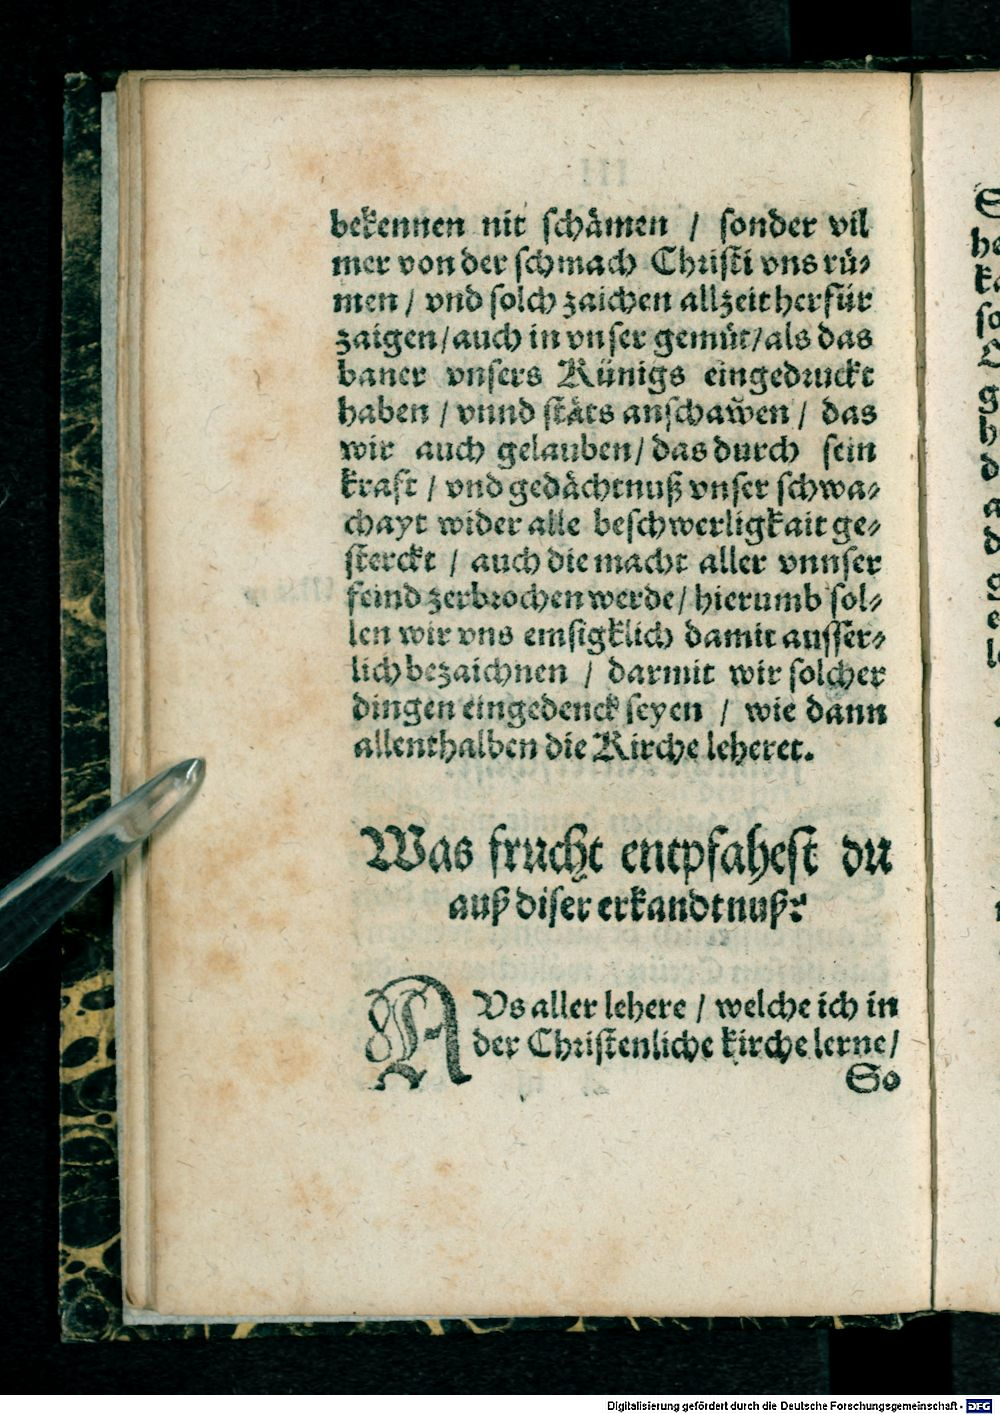 bekennen nit schämen / sonder vil
mer von der schmach Christi vns rü⸗
men / vnd solch zaichen allzeit herfür
zaigen / auch in vnser gemüt / als das
baner vnsers Künigs eingedruckt
haben / vnnd stäts anschawen / das
wir auch gelauben / das durch sein
krafft / vnd gedächtnuß vnser schwa⸗
chayt wider alle beschwerligkait ge⸗
sterckt / auch die macht aller vnnser
feind zerbrochen werde / hierumb sol⸗
len wir vns emsigklich damit ausser⸗
lich bezaichnen / darmit wir solcher
dingen eingedenck seyen / wie dann
allenthalben die Kirche leheret.
Was frucht entpfahest du
auß diser erkandtnuß?
AVs aller lehere / welche ich in
der Christenliche kirche lerne /
So
Digitalisierung gefördert durch die Deutsche Forschungsgemeinschaft - DFG